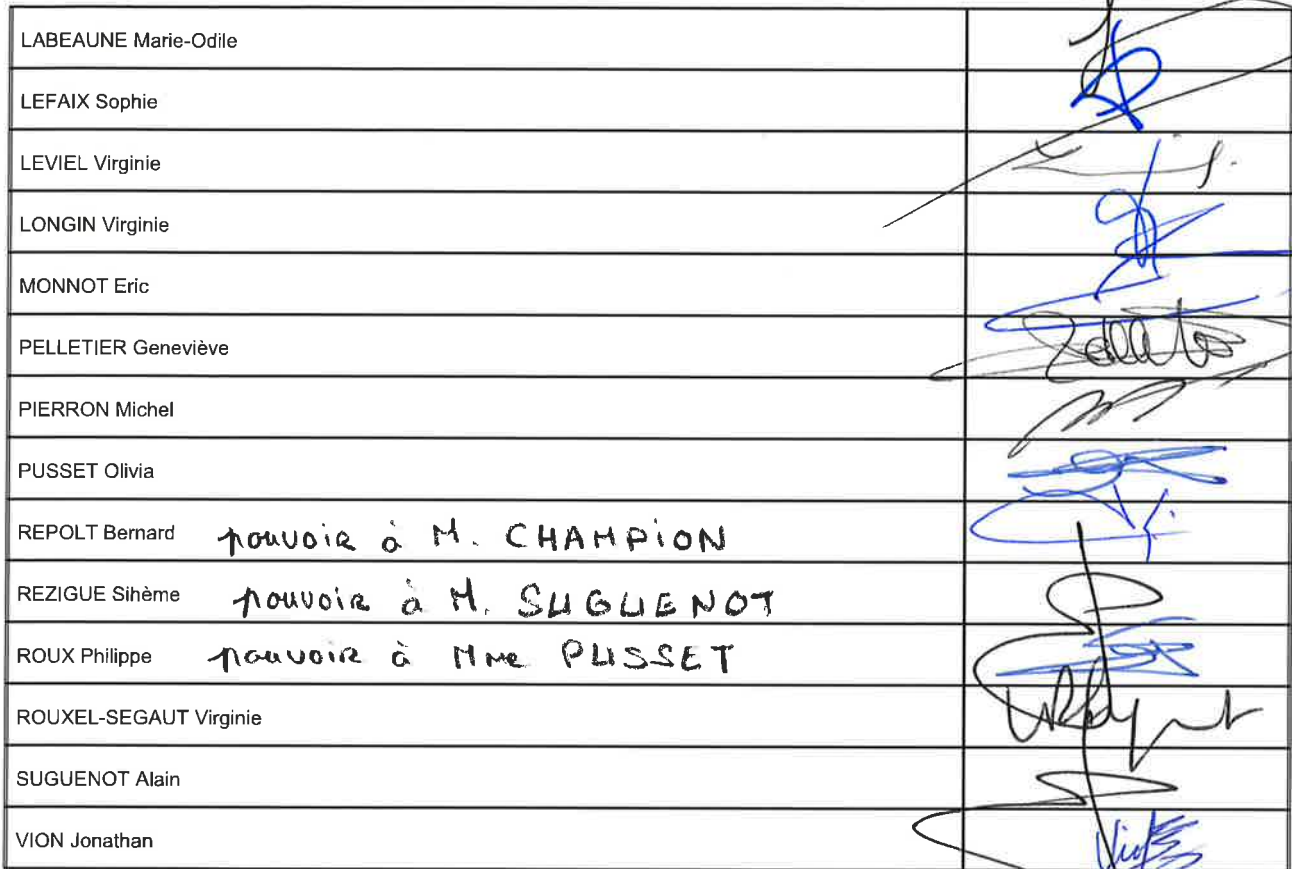 LABEAUNE Marie-Odile
LEFAIX Sophie
LEVIEL Virginie
LONGIN Virginie
MONNOT Eric
PELLETIER Geneviève
PIERRON Michel
PUSSET Olivia
REPOLT Bernard pouvoir à M. CHAMPION
REZIGUE Sihème pouvoir à M. SUGUENOT
ROUX Philippe pouvoir à Mme PUSSET
ROUXEL-SEGAUT Virginie
SUGUENOT Alain
VION Jonathan